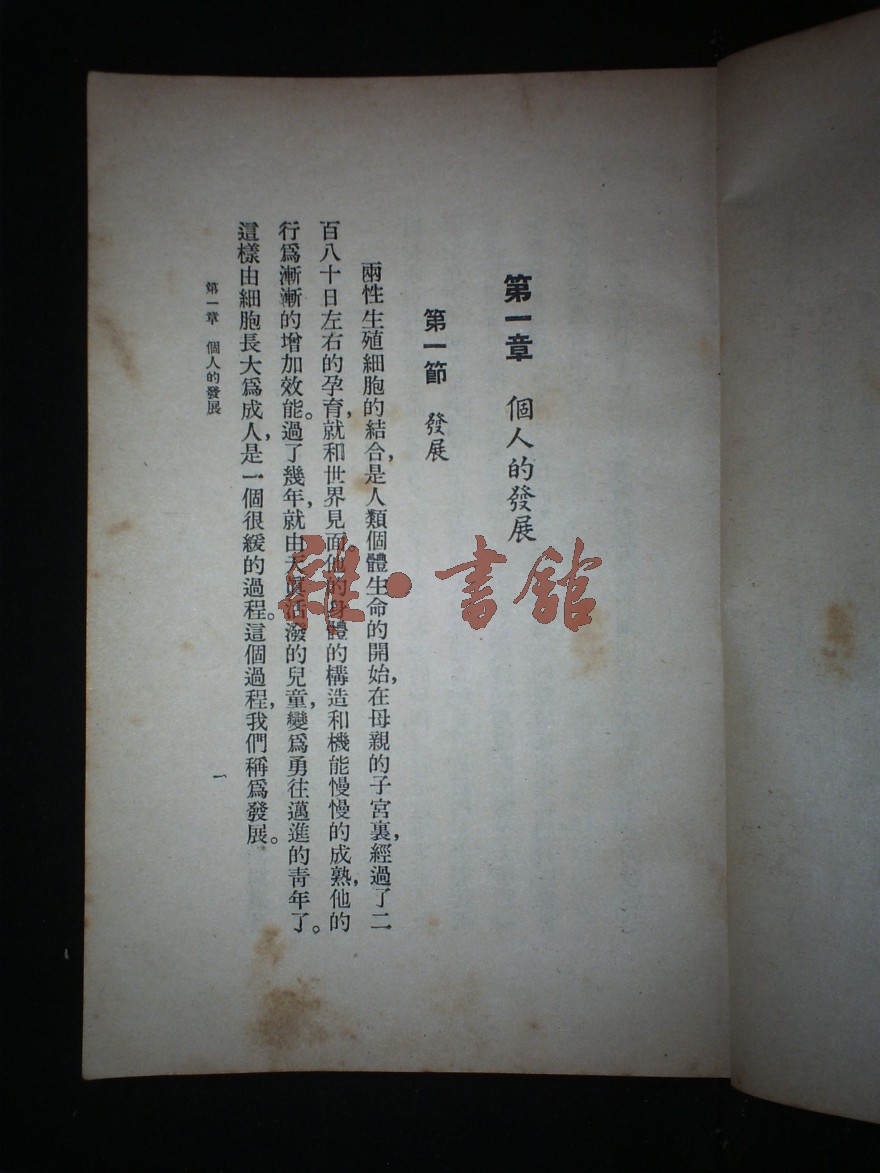 第一章 個人的發展
第一節 發展
兩性生殖細胞的結合,是人類個體生命的開始,在母親的子宮裏,經過了二
百八十日左右的孕育,就和世界見面。他的身體的構造和機能慢慢的成熟,他的
行爲漸漸的增加效能。過了幾年,就由天眞活潑的兒童,變爲勇往邁進的靑年了。
這樣由細胞長大爲成人,是一個很緩的過程。這個過程,我們稱爲發展。
第一章 個人的發展
一
雜·書館